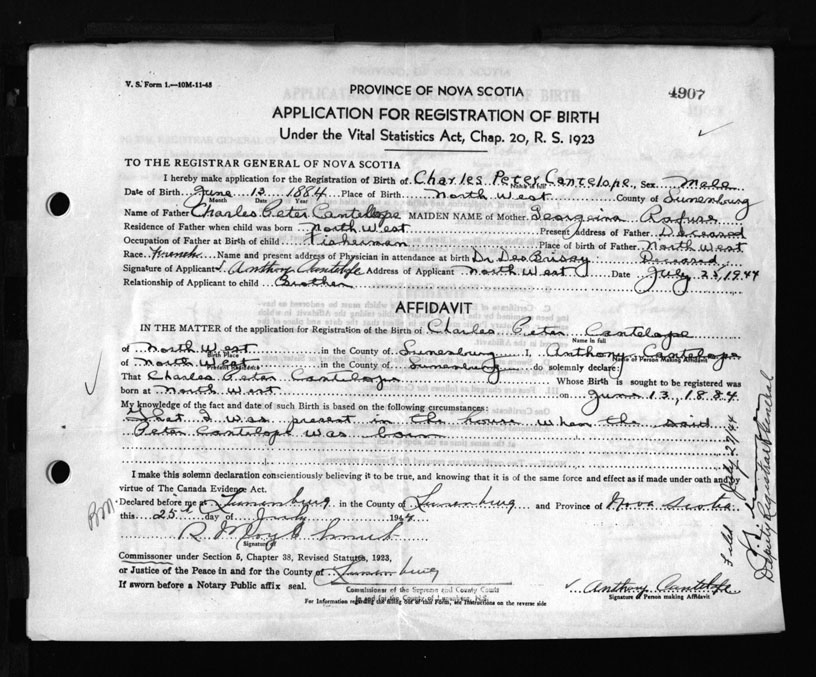 V. S. Form 1.—10M-11-43
PROVINCE OF NOVA SCOTIA
4907
APPLICATION FOR REGISTRATION OF BIRTH
Under the Vital Statistics Act, Chap. 20, R. S. 1923
TO THE REGISTRAR GENERAL OF NOVA SCOTIA
I hereby make application for the Registration of Birth of Charles Peter Cantelope, Sex Male
Name in full
Date of Birth June 13 1884 Place of Birth North West County of Lunenburg
Month Date Year
Name of Father Charles Peter Cantelope MAIDEN NAME of Mother Georgina Rafuse
Residence of Father when child was born North West Present Address of Father Deceased
Occupation of Father at Birth of child Fisherman Place of birth of Father North West
Race French Name and present address of Physician in attendance at birth Dr. DesBrisay Deceased
Signature of Applicant Anthony Cantelope Address of Applicant North West Date July 25, 1944
Relationship of Applicant to child Brother
AFFIDAVIT
IN THE MATTER of the application for Registration of the Birth of Charles Peter Cantelope
Name in full
of North West in the County of Lunenburg I, Anthony Cantelope
Birth Place Name of Person Making Affidavit
of North West in the County of Lunenburg do solemnly declare;
Present Residence
That Charles Peter Cantelope Whose Birth is sought to be registered was
born at North West on June 13, 1884
My knowledge of the fact and date of such Birth is based on the following circumstances:
That I was present in the house when the said
Peter Cantelope was born
I make this solemn declaration conscientiously believing it to be true, and knowing that it is of the same force and effect as if made under oath and by
virtue of The Canada Evidence Act.
Declared before me at Lunenburg in the County of Lunenburg and Province of Nova Scotia
this 25th day of July 1944
Signature of
Commissoner under Section 5, Chapter 38, Revised Statutes, 1923,
or Justice of the Peace in and for the County of Lunenburg
If sworn before a Notary Public affix seal.
Commissioner of the Supreme and County Courts
in and for the County of Lunenburg, N.S.
Anthony Cantelope
Signature of Person making Affidavit
For Information regarding the filling out of this Form, see Instructions on the reverse side
Filed July 27/44
Deputy Registrar General